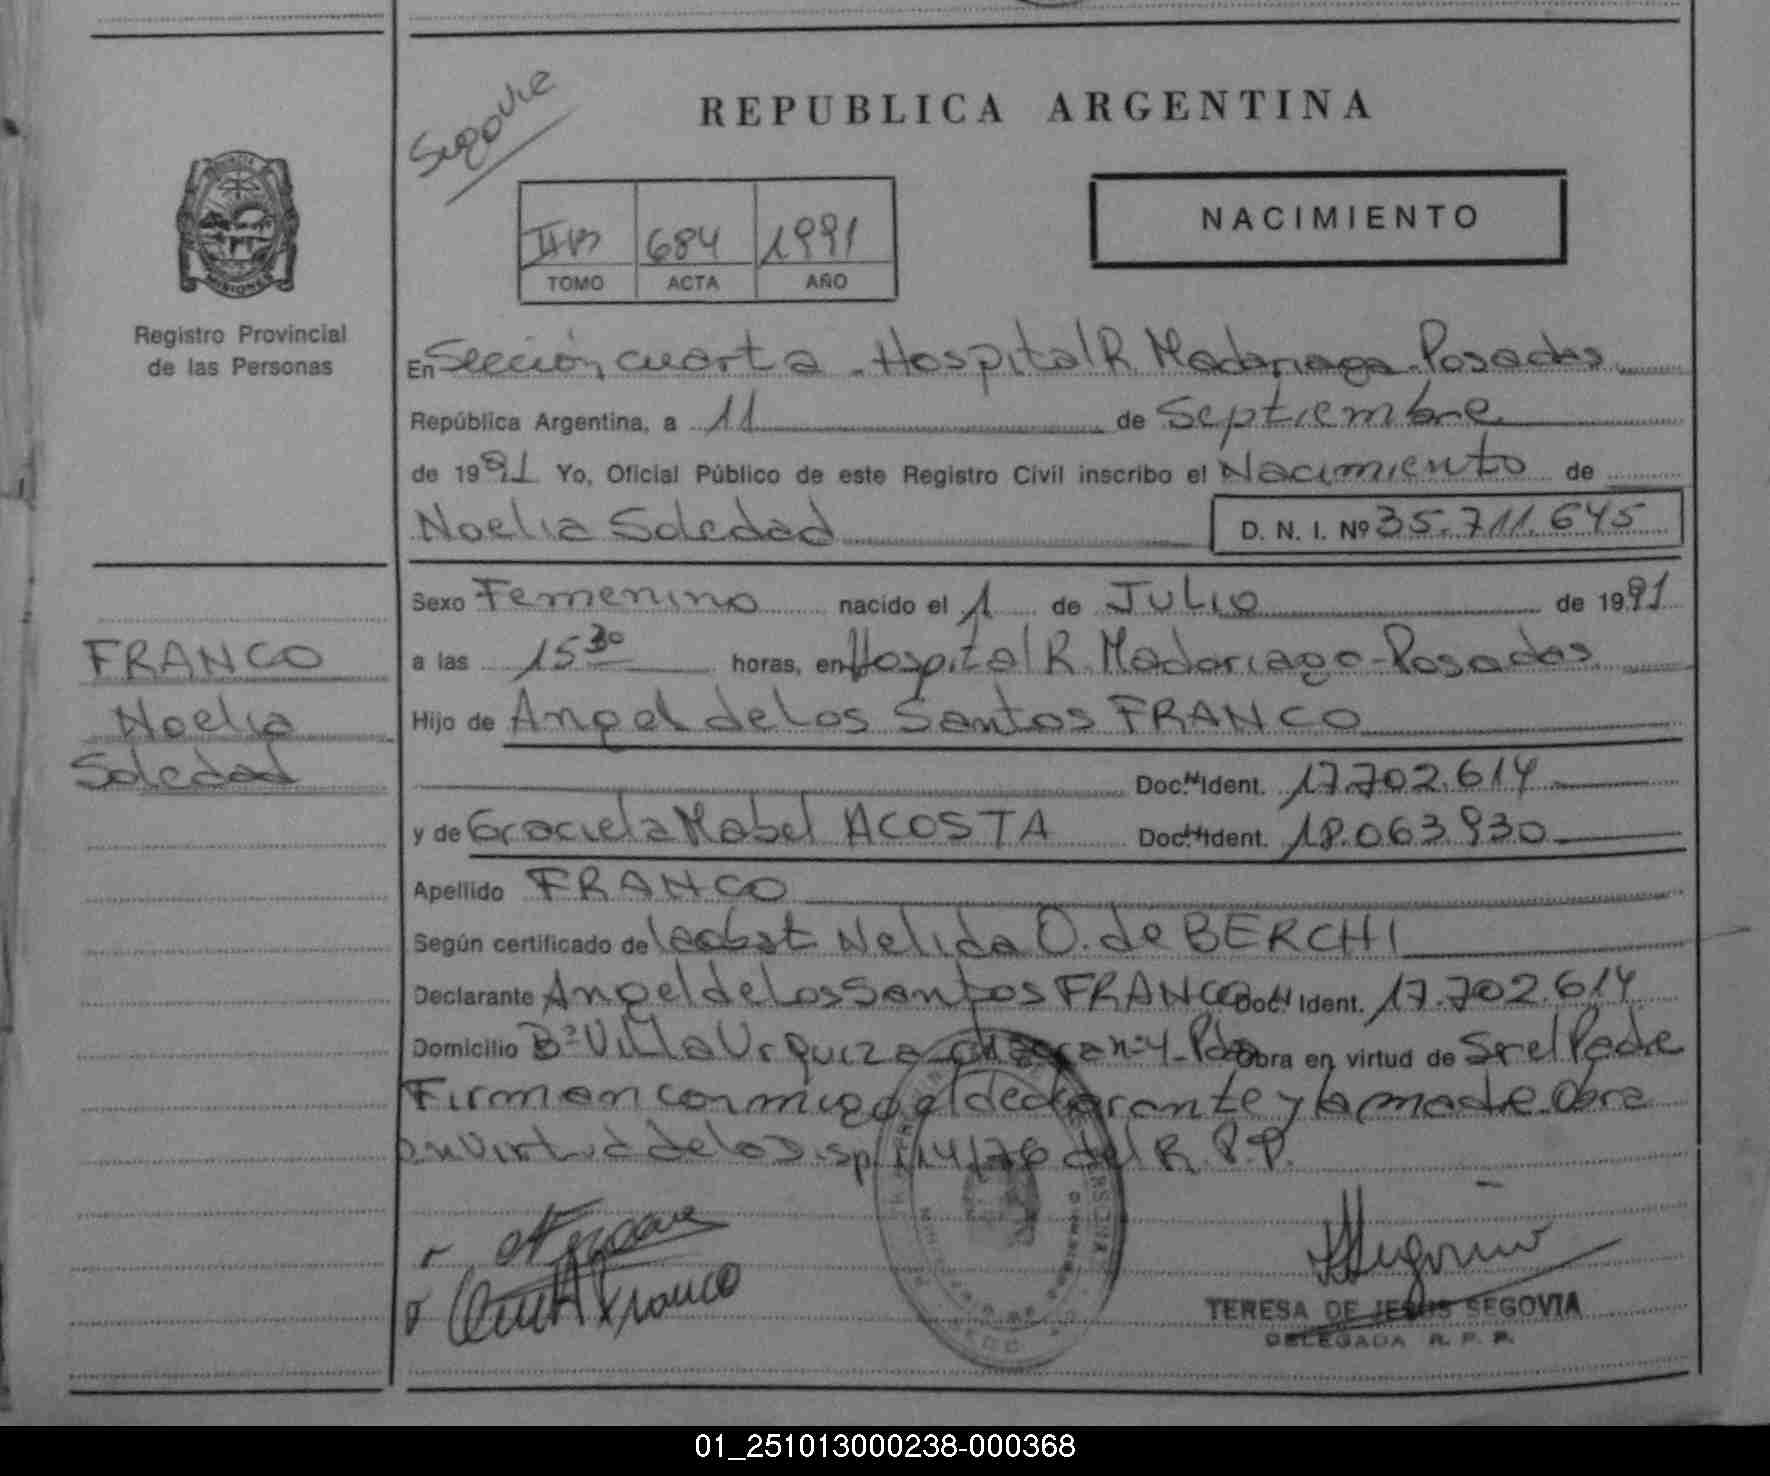 Segovia
REPUBLICA ARGENTINA
NACIMIENTO
684 1991
TOMO ACTA AÑO
MISIONES
Registro Provincial
de las Personas
En Sección cuarta - Hospital R. Madariaga - Posadas
República Argentina, a 11 de Septiembre
de 1991 Yo, Oficial Público de este Registro Civil inscribo el Nacimiento de
Noelia Soledad D. N. I. Nº 35.711.645
Sexo Femenino nacido el 1 de Julio de 1991
a las 15 30 horas, en Hospital R. Madariaga - Posadas
Hijo de Angel de Los Santos FRANCO
Doc. N Ident. 17.702.614
y de Graciela Mabel ACOSTA Doc. N Ident. 18.063.930
Apellido FRANCO
Según certificado de Nelida O. de BERCHI
Declarante Angel de Los Santos FRANCO Doc. N Ident. 17.702.614
Domicilio Bº Villa Urquiza chacra nº 4 - Pdas Obra en virtud de Ser el Padre
Firman conmigo el declarante y la madre. Obra
en virtud de la Disp. 114/76 del R.P.P.
FRANCO
Noelia
Soledad
A Franco
Franco
TERESA DE JESUS SEGOVIA
DELEGADA R. P. P.
01_251013000238-000368